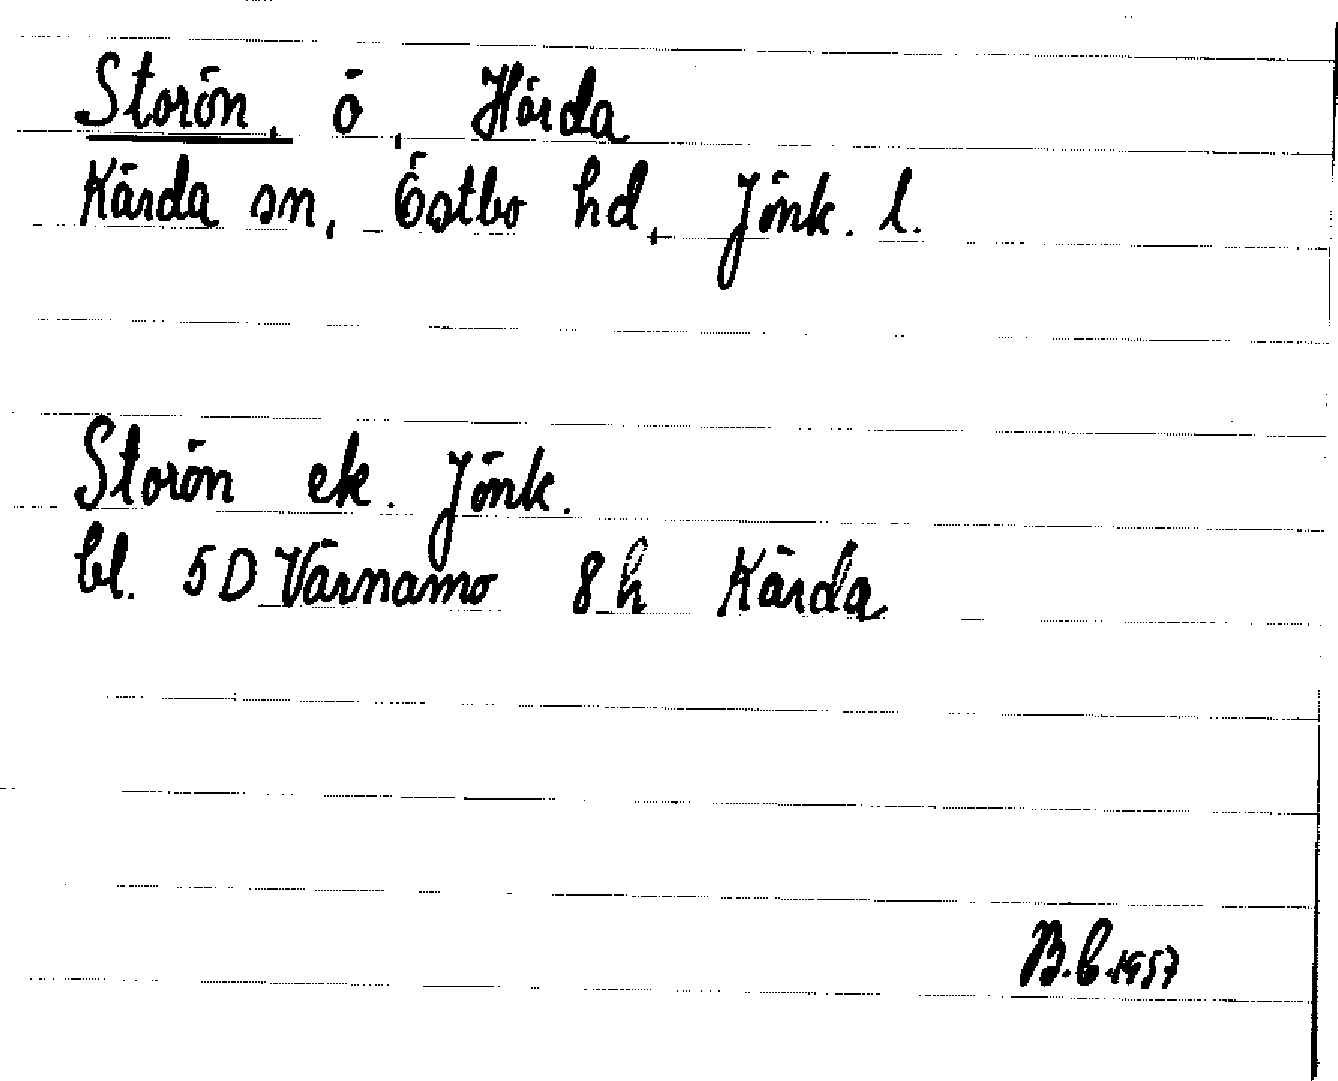 Storön, ö, Hörda
Kärda sn, Östbo hd, Jönk. l.
Storön ek. Jönk.
bl. 5D Värnamo 8h Kärda
B.b. 1957